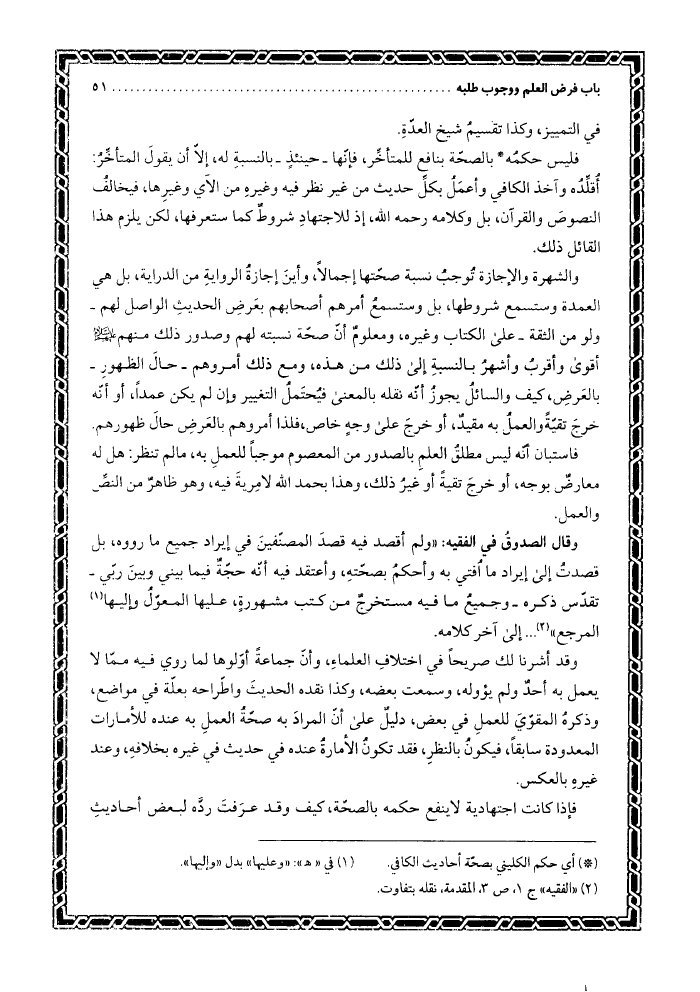 باب فرض العلم ووجوب طلبه ........................................................ ٥١
في التمييز، وكذا تقسيمُ شيخ العدّةِ.
فليس حكمُه* بالصحّة بنافع للمتأخّر، فإنّها ـ حينئذٍ ـ بالنسبةِ له، إلاّ أن يقولَ المتأخّرُ:
أُقلِّدُه وآخذ الكافي وأعمَلُ بكلِّ حديث من غير نظر فيه وغيرهِ من الآي وغيرِها، فيخالفُ
النصوصَ والقرآن، بل وكلامه رحمه الله، إذ للاجتهادِ شروطٌ كما ستعرفها، لكن يلزم هذا
القائل ذلك.
والشهرة والإجازة تُوجبُ نسبة صحّتها إجمالاً، وأينَ إجازةُ الروايةِ من الدراية، بل هي
العمدة وستسمع شروطها، بل وستسمعُ أمرهم أصحابهم بعَرضِ الحديثِ الواصل لهم ـ
ولو من الثقة ـ علىٰ الكتاب وغيره، ومعلومٌ أنّ صحّة نسبته لهم وصدور ذلك منهم عليهم السلام
أقوىٰ وأقربُ وأشهرُ بالنسبةِ إلىٰ ذلك من هذه، ومع ذلك أمروهم ـ حالَ الظهورِ ـ
بالعَرضِ، كيف والسائلُ يجوزُ أنّه نقله بالمعنىٰ فيُحتَملُ التغيير وإن لم يكن عمداً، أو أنّه
خرجَ تقيّةً والعملُ به مقيدٌ، أو خرجَ علىٰ وجهٍ خاص، فلذا أمروهم بالعَرضِ حالَ ظهورهم.
فاستبان أنّه ليس مطلقُ العلمِ بالصدور من المعصوم موجباً للعملِ به، مالم تنظر: هل له
معارضٌ بوجه، أو خرجَ تقيةً أو غيرُ ذلك، وهذا بحمد الله لامِريةَ فيه، وهو ظاهرٌ من النصِّ
والعمل.
وقال الصدوقُ في الفقيه: «ولم أقصد فيه قصدَ المصنّفينَ في إيراد جميع ما رووه، بل
قصدتُ إلىٰ إيراد ما أُفتي به وأحكمُ بصحّتهِ، وأعتقد فيه أنّه حجّةٌ فيما بيني وبينَ ربّي ـ
تقدّس ذكره ـ وجميعُ ما فيه مستخرجٌ من كتب مشهورةٍ، عليها المعوّلُ وإليها(١)
المرجع»(٢)... إلىٰ آخر كلامه.
وقد أشرنا لك صريحاً في اختلافِ العلماءِ، وأنّ جماعةً أوّلوها لما روي فيه ممّا لا
يعمل به أحدٌ ولم يؤوله، وسمعت بعضه، وكذا نقده الحديثَ واطّراحه بعلّة في مواضع،
وذكرهُ المقوّيَ للعملِ في بعض، دليلٌ علىٰ أنّ المرادَ به صحّةُ العملِ به عنده للأمارات
المعدودة سابقاً، فيكونُ بالنظرِ، فقد تكونُ الأمارةُ عنده في حديث في غيره بخلافهِ، وعند
غيرهِ بالعكس.
فإذا كانت اجتهادية لاينفع حكمه بالصحّة، كيف وقد عرفتَ ردَّه لبعض أحاديثِ
(*) أي حكم الكليني بصحّة أحاديث الكافي. (١) في «ه»: «وعليها» بدل «وإليها».
(٢) «الفقيه» ج ١، ص ٣، المقدمة، نقله بتفاوت.